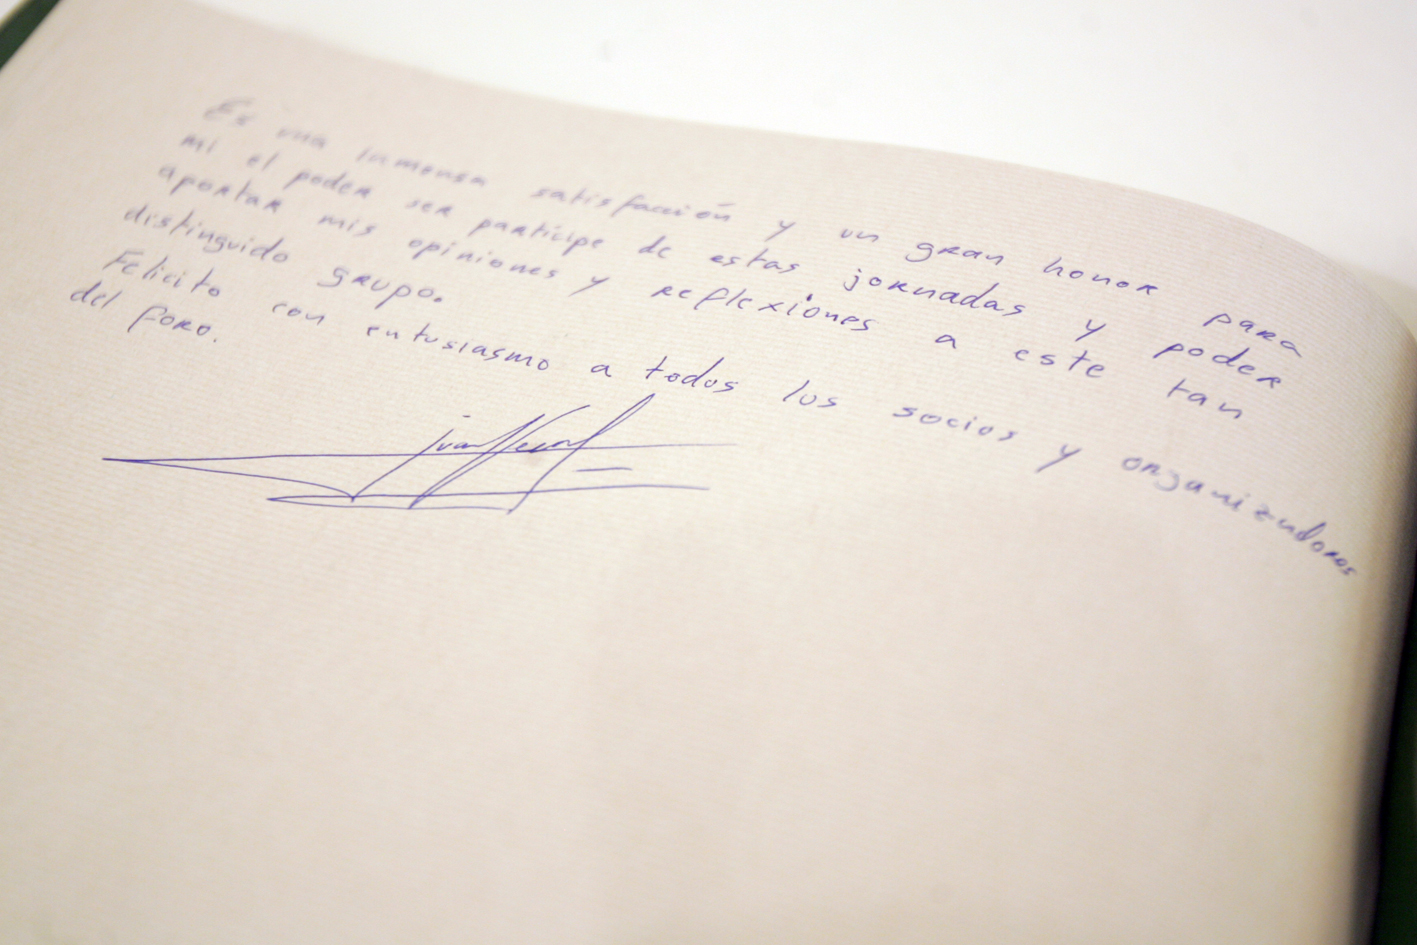 Es una inmensa satisfacción y un gran honor para
mi el poder ser partícipe de estas jornadas y poder
aportar mis opiniones y reflexiones a este tan
distinguido grupo.
Felicito con entusiasmo a todos los socios y organizadores
del foro.
juan